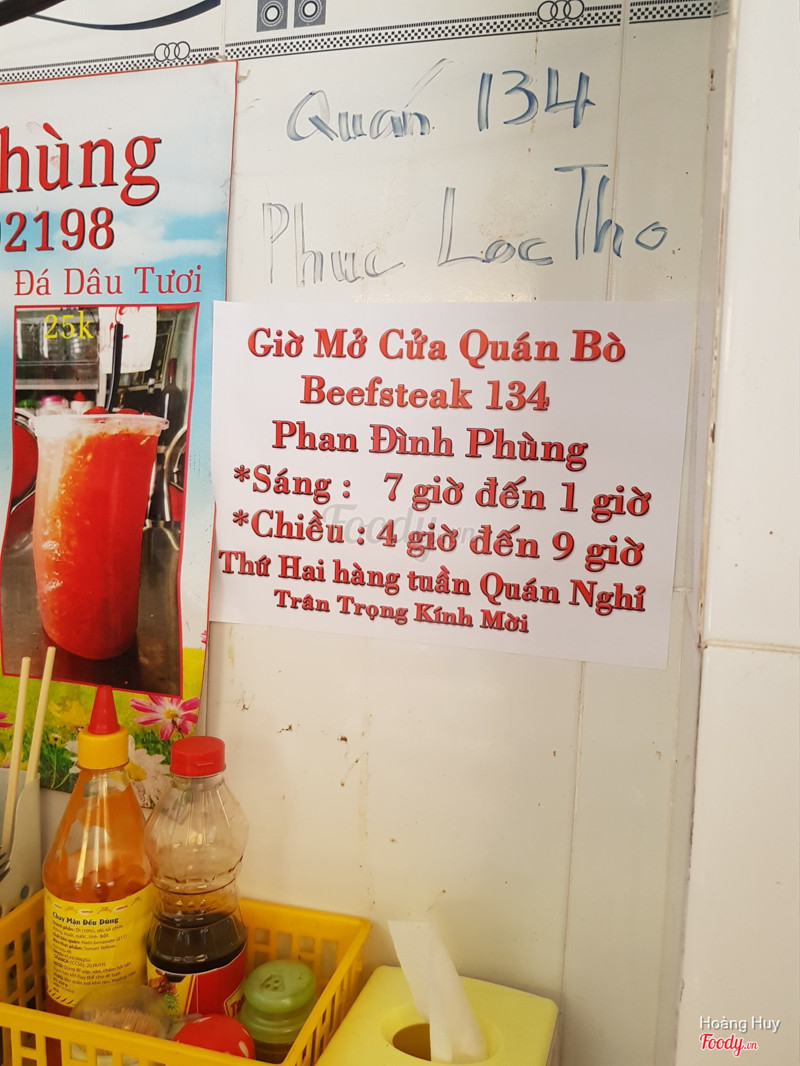 Quán 134
Phuc Loc Tho
hùng
2198
Đá Dâu Tươi
25k
Giờ Mở Cửa Quán Bò
Beefsteak 134
Phan Đình Phùng
*Sáng : 7 giờ đến 1 giờ
*Chiều : 4 giờ đến 9 giờ
Thứ Hai hàng tuần Quán Nghỉ
Trân Trọng Kính Mời
Foody.vn
Chay Mặn Đều Dùng
Hoàng Huy
Foody.vn